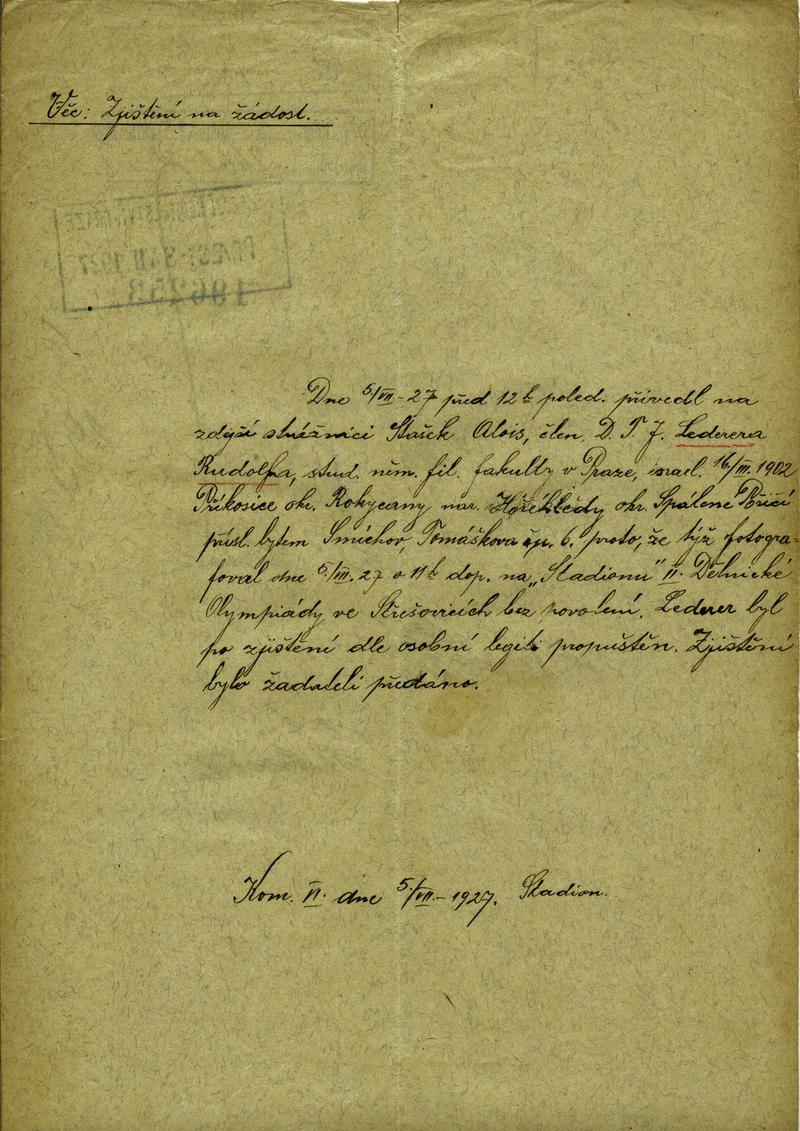 Věc: Zjištění na žádost.
Dne 5/VII - 27 před 12 h poled. přivedl na
zdejší strážnici Stašek Alois, člen D. T. J. Lederera
Rudolfa, stud. něm. fil. fakulty v Praze, israel. 16/III. 1902
Příkosice okr. Rokycany nar. okr. Spálené Poříčí
přísl. bytem Smíchov, Tomáškova čp. 6. proto, že týž fotogra=
foval dne 5/VII. 27 o 11 h dop. na „Stadionu" II. Dělnické
Olympiády ve Střešovicích bez povolení. Lederer byl
po zjištění dle osobní legiti propuštěn. Zjištění
bylo žadateli předáno.
Kom. VI. dne 5/VII. - 1927. Stadion.